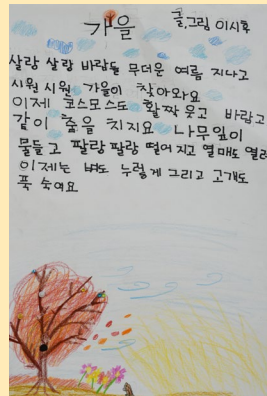 가을
글,그림 이시후
살랑 살랑 바람들 무더운 여름 지나고
시원 시원 가을이 찾아와요
이제 코스모스도 활짝 웃고 바람과
같이 춤을 치지요 나무잎이
물들고 팔랑 팔랑 떨어지고 열매도 열려
이제는 벼도 누렇게 그리고 고개도
푹 숙여요